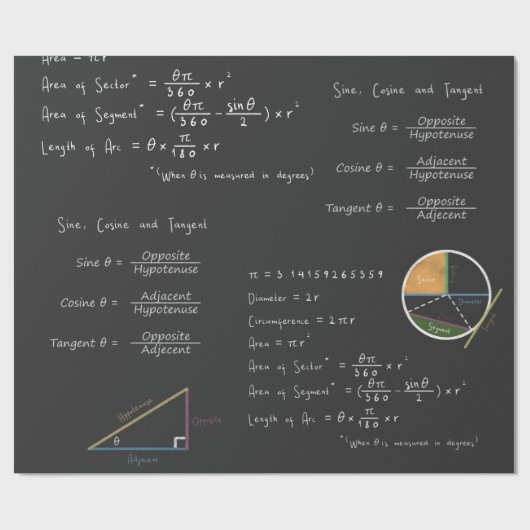 Area = πr²
Area of Sector* = θπ/360 × r²
Area of Segment* = (θπ/360 - sinθ/2) × r²
Length of Arc = θ × π/180 × r
*(When θ is measured in degrees)
Sine, Cosine and Tangent
Sine θ = Opposite/Hypotenuse
Cosine θ = Adjacent/Hypotenuse
Tangent θ = Opposite/Adjecent
Sine, Cosine and Tangent
Sine θ = Opposite/Hypotenuse
Cosine θ = Adjacent/Hypotenuse
Tangent θ = Opposite/Adjecent
Hypotenuse
Opposite
θ
Adjacent
π = 3.14159265359
Diameter = 2r
Circumference = 2πr
Area = πr²
Area of Sector* = θπ/360 × r²
Area of Segment* = (θπ/360 - sinθ/2) × r²
Length of Arc = θ × π/180 × r
*(When θ is measured in degrees)
Sector
Radius
Diameter
Chord
Segment
Tangent